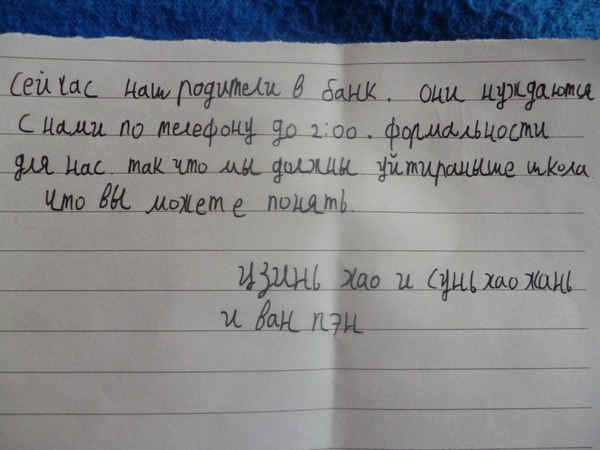 сейчас наш родители в банк. они нуждаются
с нами по телефону до 2:00. формальности
для нас. так что мы должны уйтираныше школа
что вы можете понять.
цзинь хао и сунь хаожань
и ван пэн